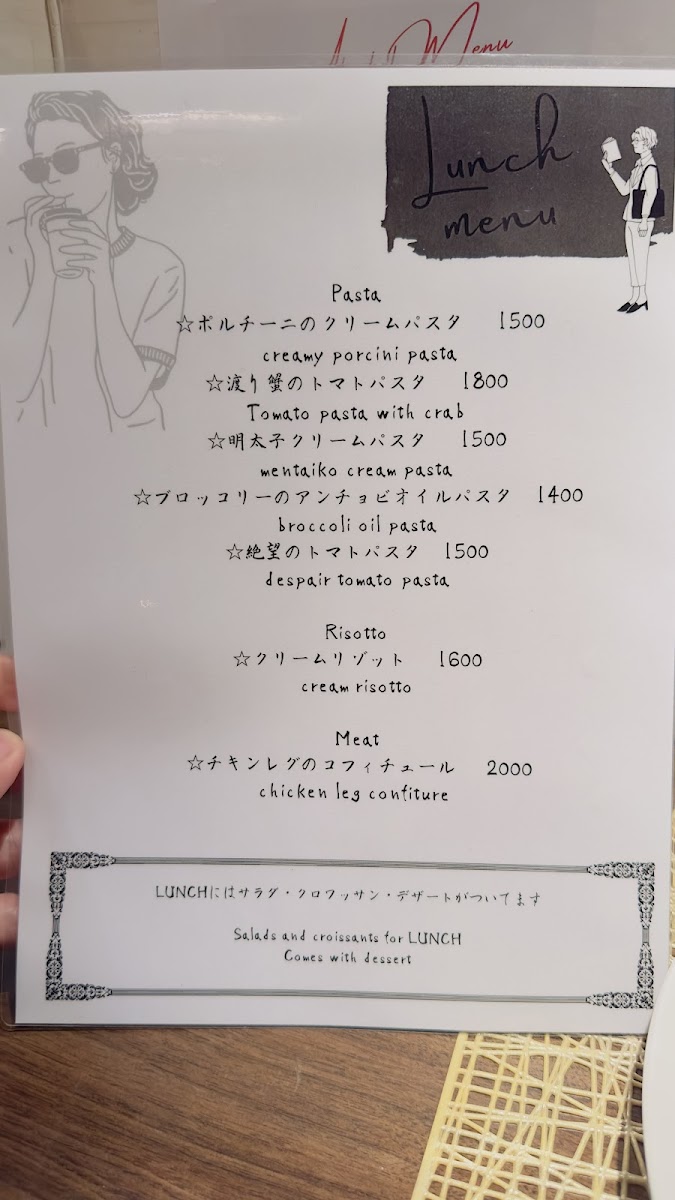 Menu
Lunch
menu
Pasta
☆ポルチーニのクリームパスタ 1500
creamy porcini pasta
☆渡り蟹のトマトパスタ 1800
Tomato pasta with crab
☆明太子クリームパスタ 1500
mentaiko cream pasta
☆ブロッコリーのアンチョビオイルパスタ 1400
broccoli oil pasta
☆絶望のトマトパスタ 1500
despair tomato pasta
Risotto
☆クリームリゾット 1600
cream risotto
Meat
☆チキンレグのコフィチュール 2000
chicken leg confiture
LUNCHにはサラダ・クロワッサン・デザートがついてます
Salads and croissants for LUNCH
Comes with dessert